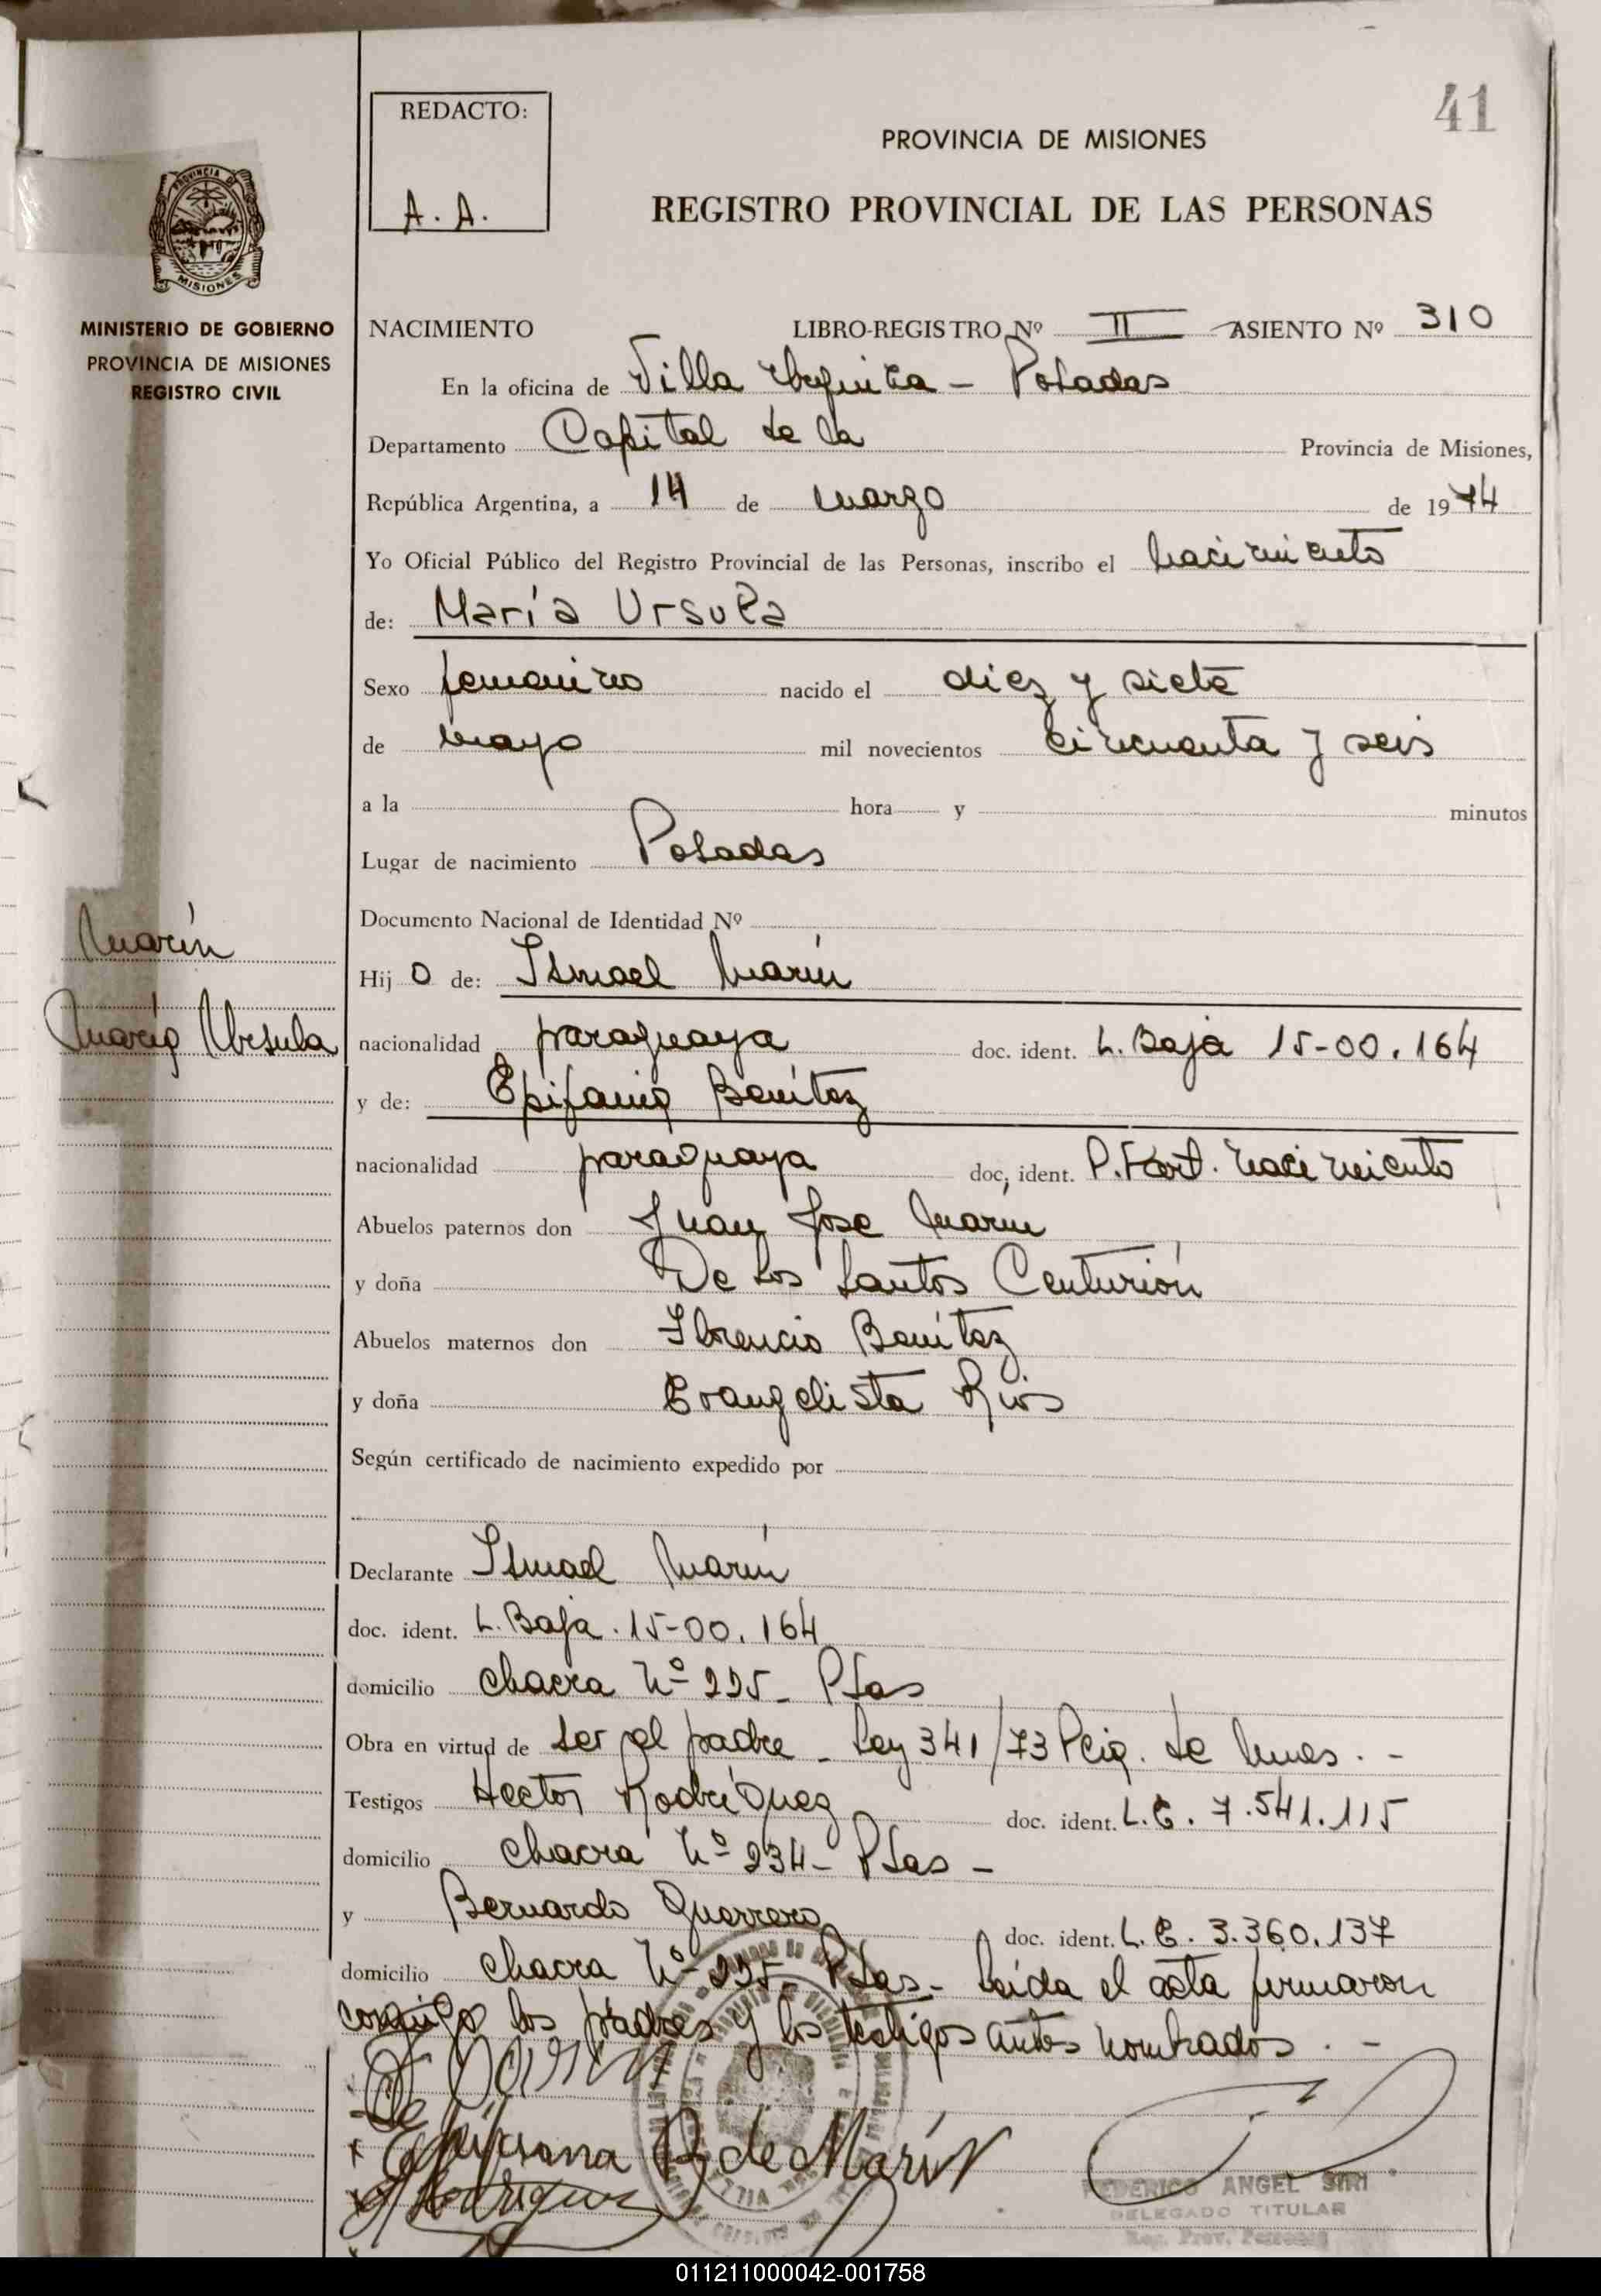 41
REDACTO:
A. A.
PROVINCIA DE MISIONES
REGISTRO PROVINCIAL DE LAS PERSONAS
PROVINCIA DE
MISIONES
MINISTERIO DE GOBIERNO
PROVINCIA DE MISIONES
REGISTRO CIVIL
NACIMIENTO LIBRO-REGISTRO Nº II ASIENTO Nº 310
En la oficina de Villa Urquiza - Posadas
Departamento Capital de la Provincia de Misiones,
República Argentina, a 14 de marzo de 1974
Yo Oficial Público del Registro Provincial de las Personas, inscribo el nacimiento
de: María Ursula
Sexo femenino nacido el diez y siete
de mayo mil novecientos cincuenta y seis
a la hora y minutos
Lugar de nacimiento Posadas
Documento Nacional de Identidad Nº
Marín
María Ursula
Hij o de: Ismael Marín
nacionalidad paraguaya doc. ident. L. Baja 15-00.164
y de: Epifania Benítez
nacionalidad paraguaya doc. ident. P. Part. nacimiento
Abuelos paternos don Juan Jose Marin
y doña De los Santos Centurión
Abuelos maternos don Florencio Benítez
y doña Evangelista Rios
Según certificado de nacimiento expedido por
Declarante Ismael Marín
doc. ident. L. Baja. 15-00.164
domicilio chacra Nº 225- Psas
Obra en virtud de ser el padre - Ley 341/73 Pcia. de Mnes. -
Testigos Hector Rodríguez doc. ident. L.E. 7.541.115
domicilio chacra Nº 234- Psas -
y Bernardo Guerrero doc. ident. L.E. 3.360.137
domicilio chacra Nº 225- Psas- Leida el acta firmaron
conmigo los padres y los testigos antes nombrados. -
Marín
Epifania B de Marín
Rodriguez
FEDERICO ANGEL SIRI
DELEGADO TITULAR
Reg. Prov. Personas
011211000042-001758